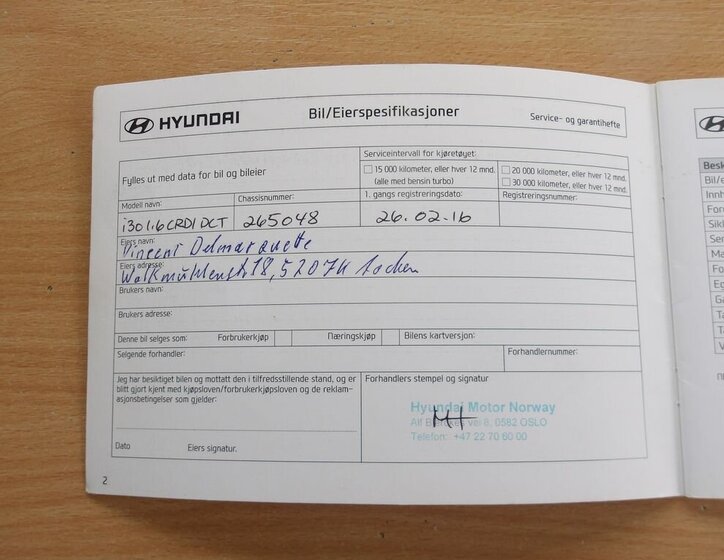 HYUNDAI
Bil/Eierspesifikasjoner
Service- og garantihefte
Fylles ut med data for bil og bileier
Serviceintervall for kjøretøyet:
15 000 kilometer, eller hver 12 mnd.
(alle med bensin turbo)
20 000 kilometer, eller hver 12 mnd.
30 000 kilometer, eller hver 12 mnd.
Modell navn:
Chassisnummer:
1. gangs registreringsdato:
Registreringsnummer:
i30 1.6 CRDI DCT
265048
26.02.16
Eiers navn:
Vincent Delmarquette
Eiers adresse:
52074 Aachen
Brukers navn:
Brukers adresse:
Denne bil selges som:
Forbrukerkjøp
Næringskjøp
Bilens kartversjon:
Selgende forhandler:
Forhandlernummer:
Jeg har besiktiget bilen og mottatt den i tilfredsstillende stand, og er
blitt gjort kjent med kjøpsloven/forbrukerkjøpsloven og de reklam-
asjonsbetingelser som gjelder:
Dato
Eiers signatur.
Forhandlers stempel og signatur
Hyundai Motor Norway
vei 8, 0582 OSLO
Telefon: +47 22 70 60 00
2